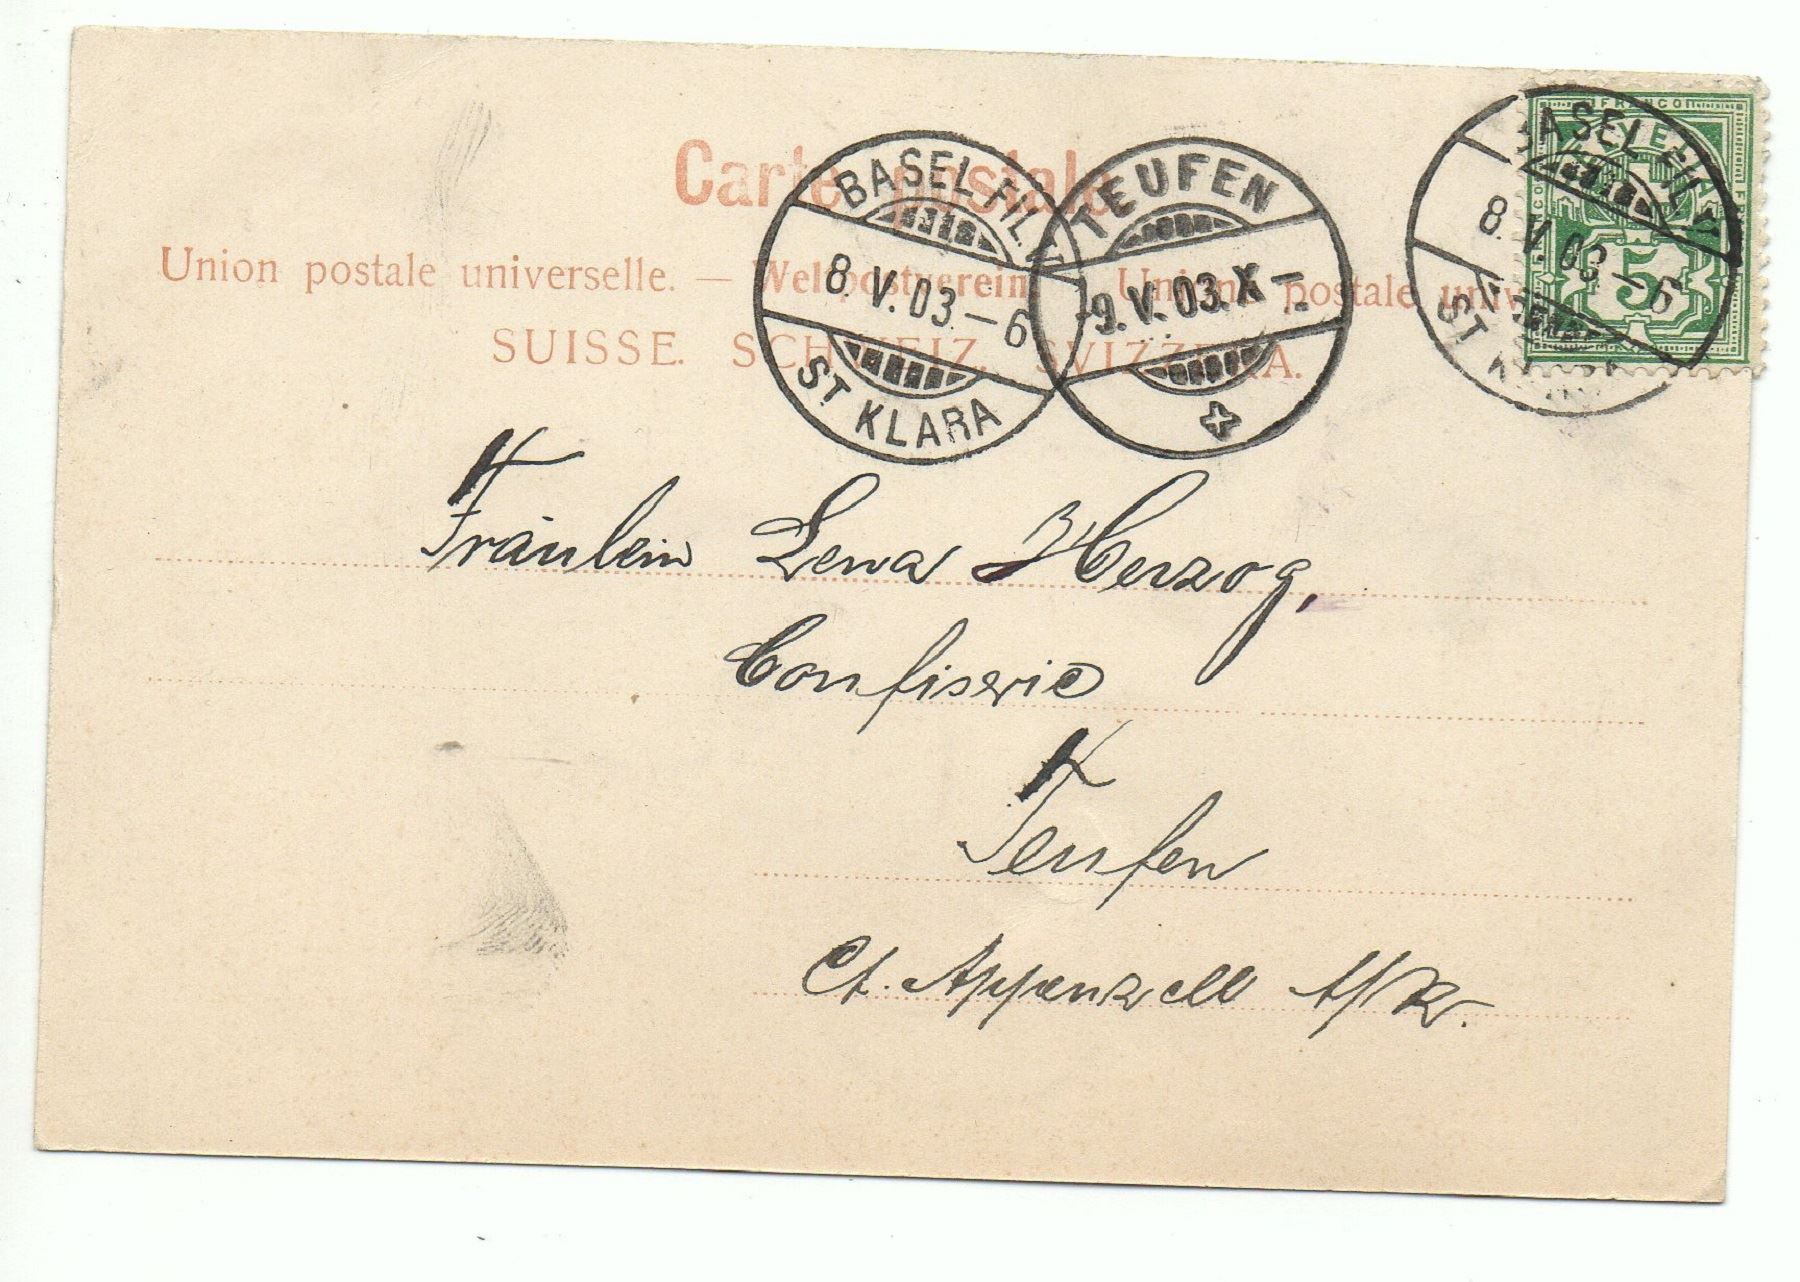 Carte postale
Union postale universelle. — Weltpostverein Union postale univ
SUISSE. SCHWEIZ. SVIZZERA.
BASEL FIL.
8. V. 03. – 6
ST KLARA
TEUFEN
9. V. 03. X –
BASEL FIL.
8. V. 03 – 6
ST KLARA
FRANCO
5
Fräulein Lena Herzog,
Confiserie
Teufen
Ct. Appenzell A/R.